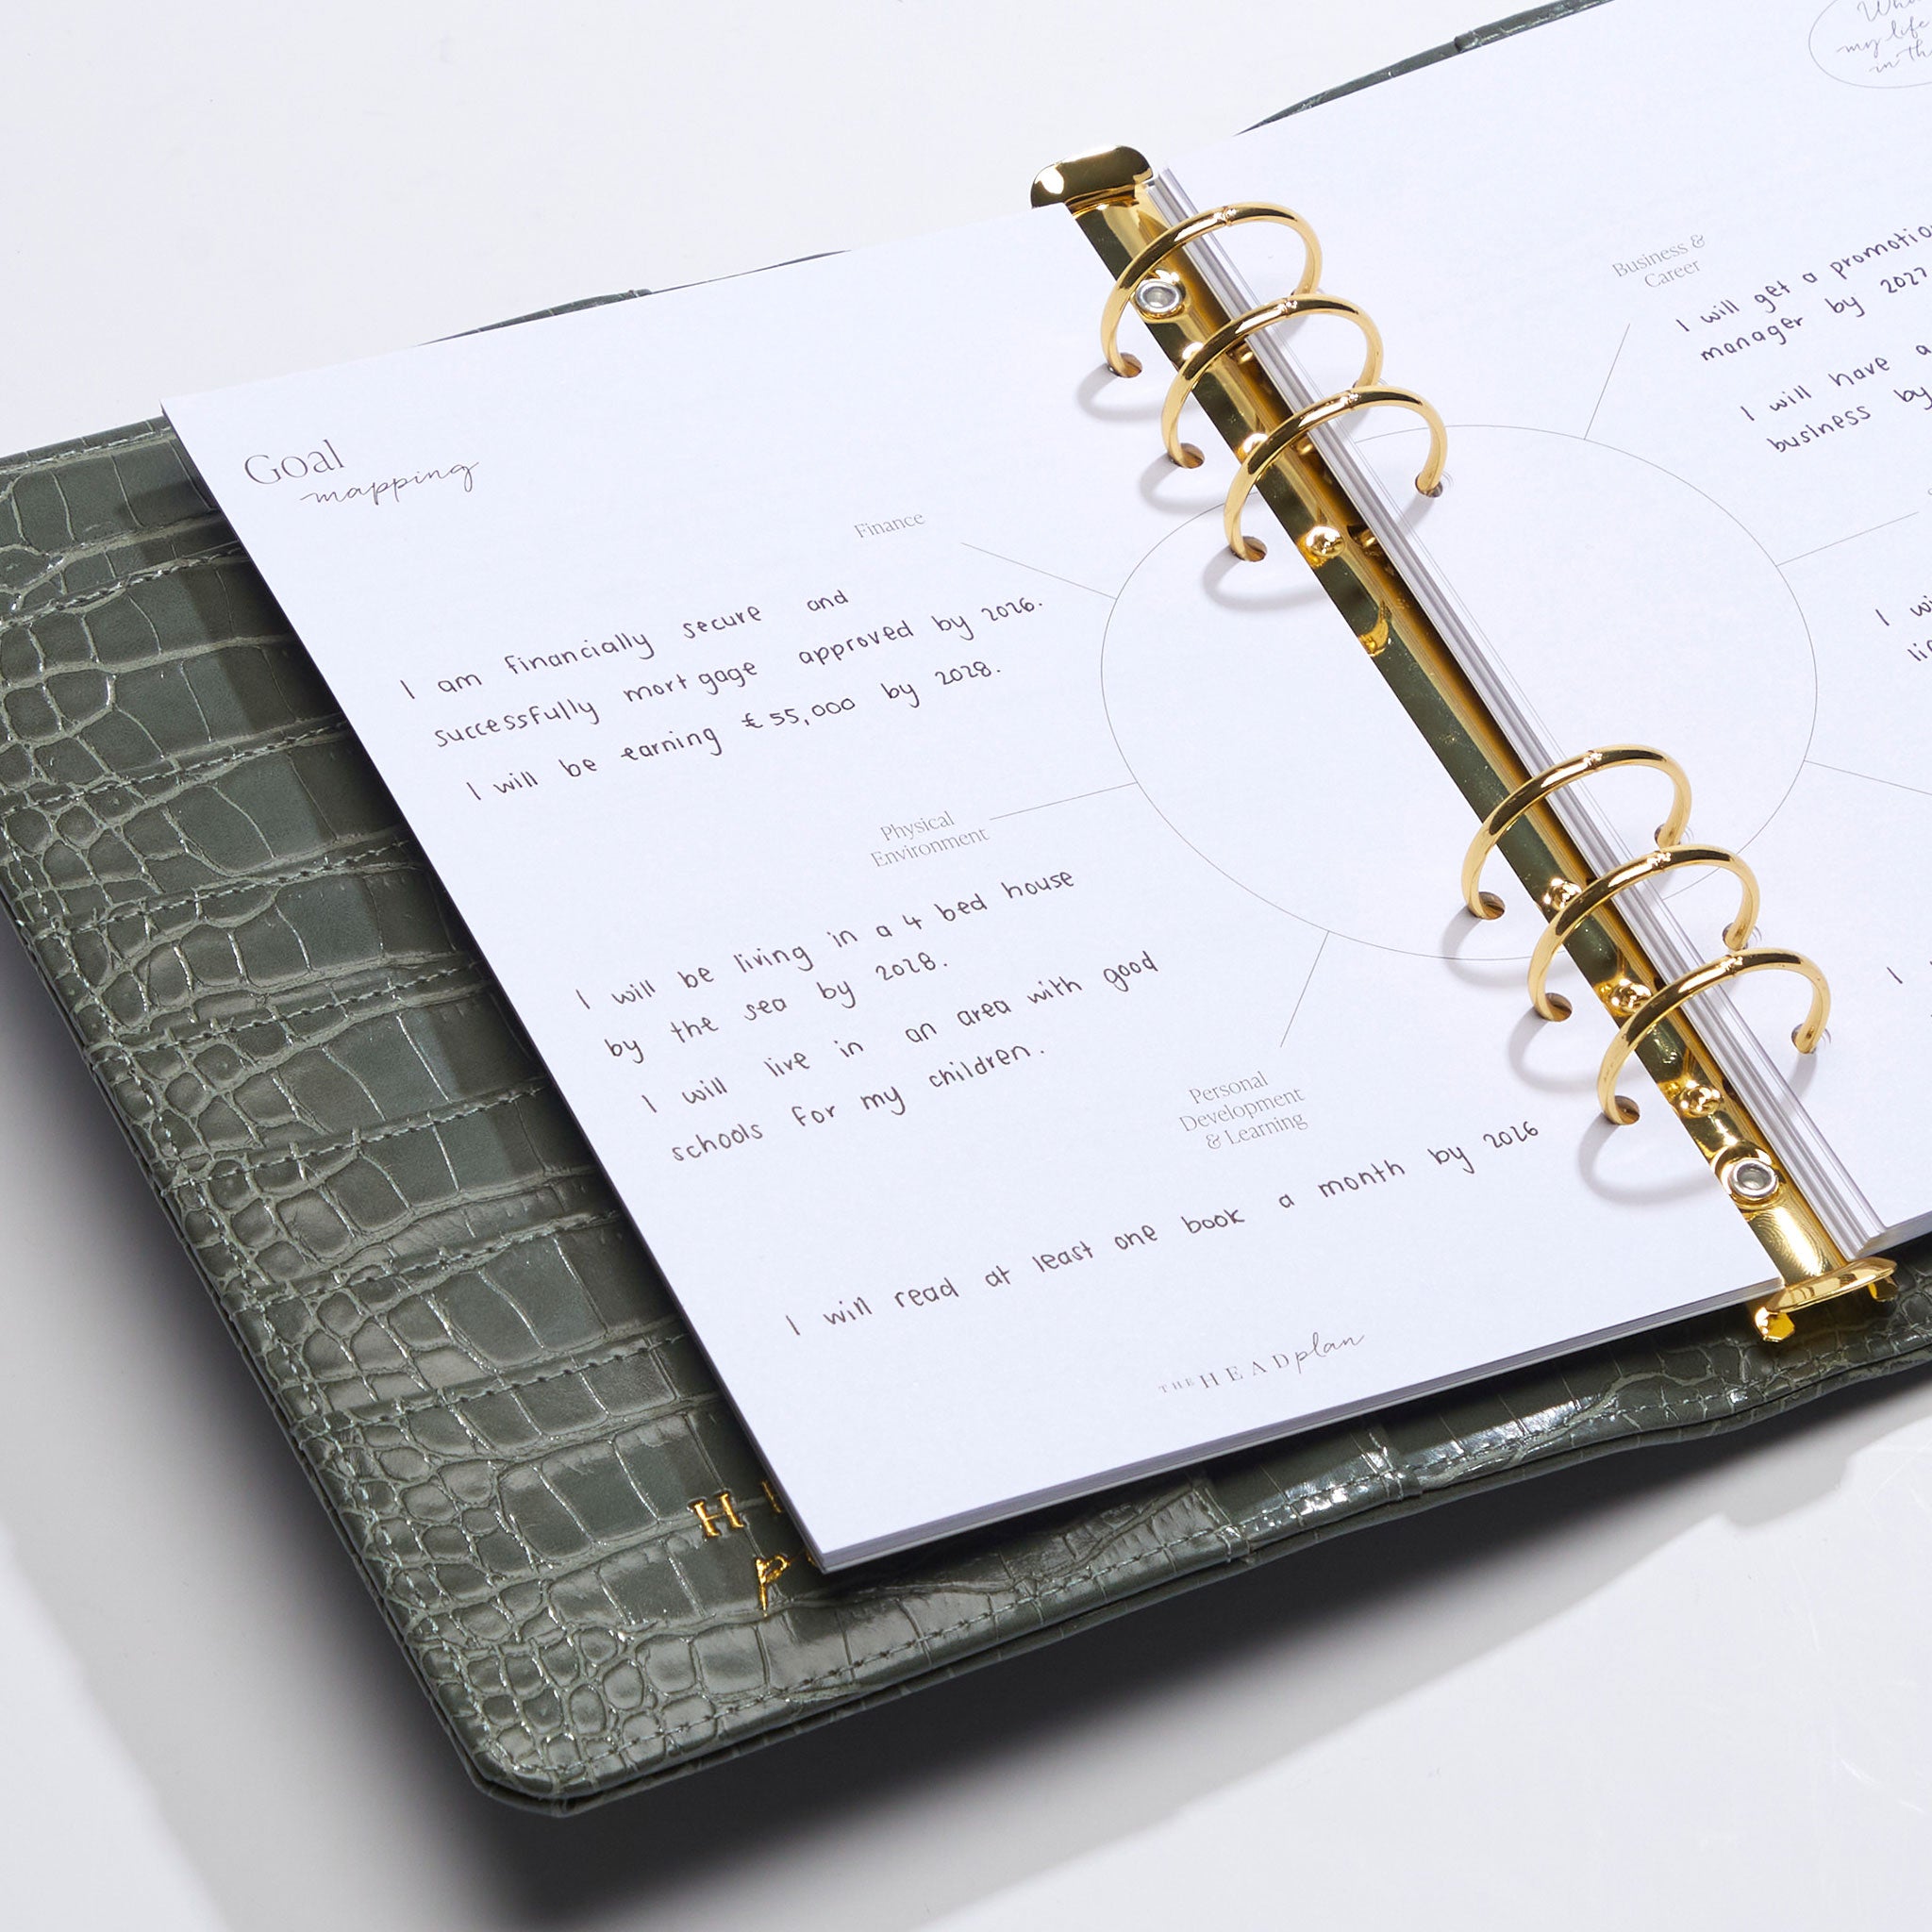 Goal
mapping
Finance
I am financially secure and
successfully mortgage approved by 2026.
I will be earning £55,000 by 2028.
Physical
Environment
I will be living in a 4 bed house
by the sea by 2028.
I will live in an area with good
schools for my children.
Personal
Development
& Learning
I will read at least one book a month by 2026
THE HEAD plan
H
my life
in
Business &
Career
I will get a
manager by 2027
I will have a
business by
I
I